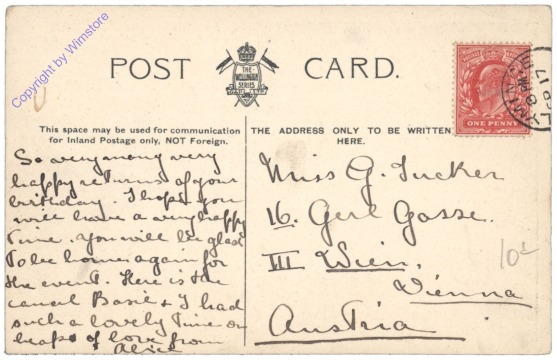 Copyright by Wimstore
POST CARD.
THE
WELLINGTON
SERIES
This space may be used for communication
for Inland Postage only, NOT Foreign.
THE ADDRESS ONLY TO BE WRITTEN
HERE.
ONE PENNY
So very many very
happy returns of your
birthday. I hope you
will have a very happy
time. You will be glad
to be home again for
the event. Here is the
canal Basil & I had
such a lovely time on
heaps of love from
Alice
Miss G. Tucker
16. Gerl Gasse.
III Wien.
Vienna
Austria